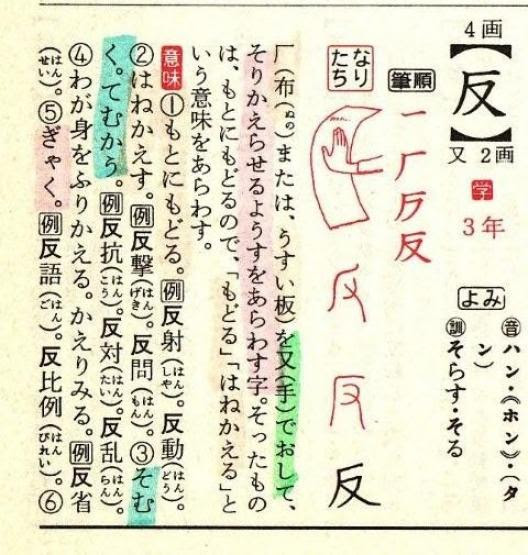 4画
【反】
又2画
学
3年
よみ
音ハン・《ホン》・(タ
ン)
訓そらす・そる
筆順
一厂反反
なり
たち
反
厂(布(ぬの)または、うすい板)を又(手)でおして、
そりかえらせるようすをあらわす字。そったもの
は、もとにもどるので、「もどる」「はねかえる」と
いう意味をあらわす。
意味①もとにもどる。例反射(はんしゃ)。反動(はんどう)。
②はねかえす。例反撃(はんげき)。反問(はんもん)。③そむ
く。てむかう。例反抗(はんこう)。反対(はんたい)。反乱(はんらん)。
④わが身をふりかえる。かえりみる。例反省
(はんせい)。⑤ぎゃく。例反語(はんご)。反比例(はんぴれい)。⑥